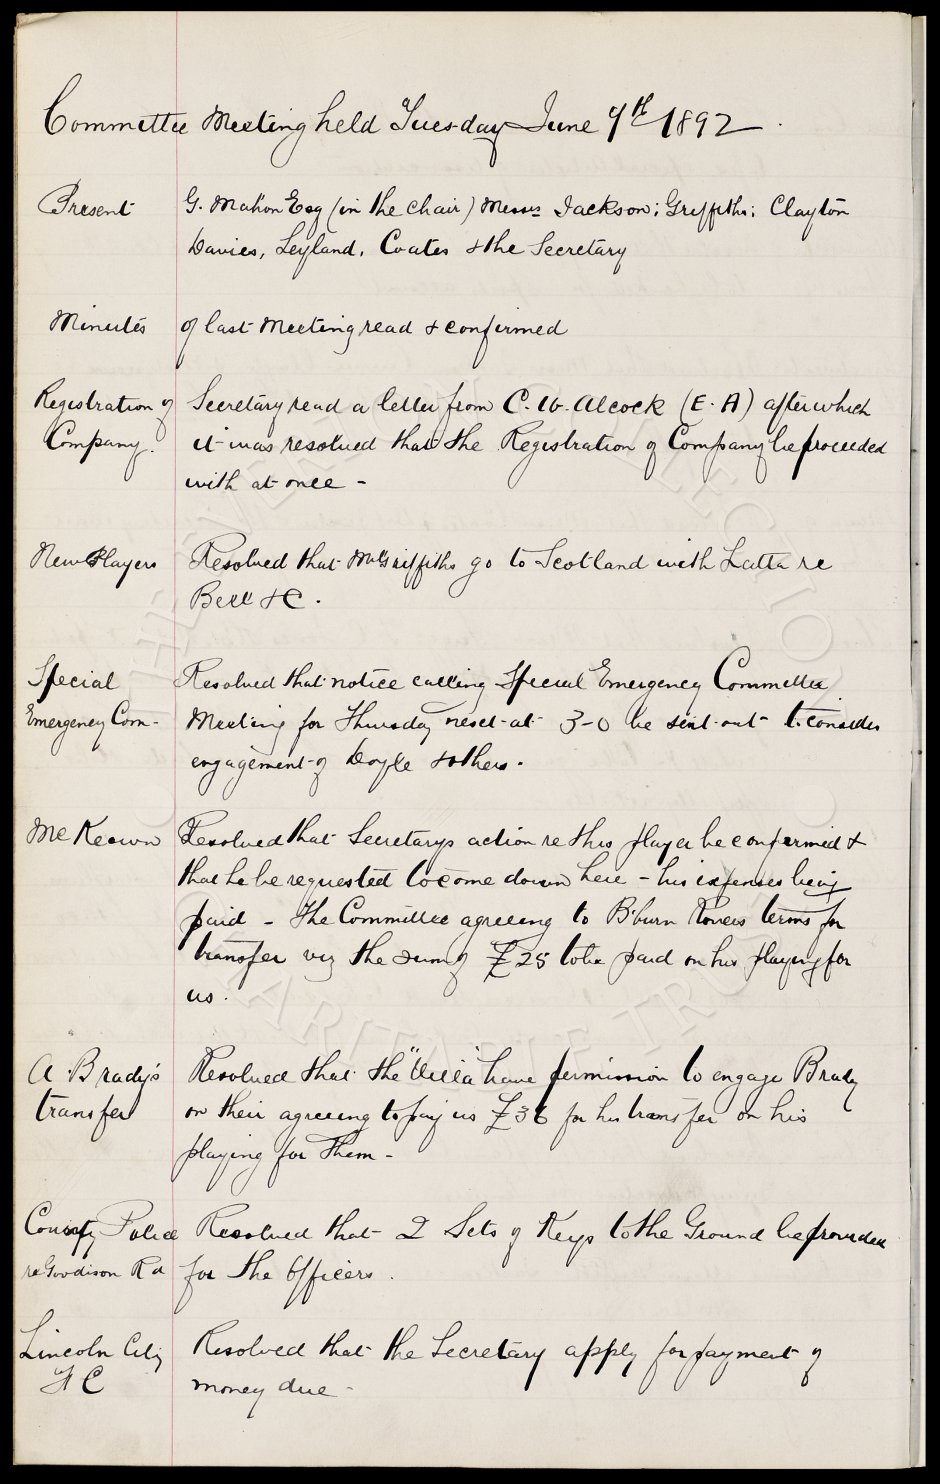 Committee Meeting held Tuesday June 7th 1892
Present G. Mahon Esq (in the chair) Messrs Jackson; Griffiths; Clayton
Davies, Leyland, Coates & the Secretary
Minutes of last Meeting read & confirmed
Registration of Secretary read a letter from C. W. Alcock (E. A) after which
Company. it was resolved that the Registration of Company be proceeded
with at once -
New Players Resolved that Mr Griffiths go to Scotland with Latta re
Bell &C.
Special Resolved that notice calling Special Emergency Committee
Emergency Com- Meeting for Thursday next at 3-0 be sent out to consider
engagement of Doyle & others.
McKeown Resolved that Secretarys action re this player be confirmed &
that he be requested to come down here - his expenses being
paid - The Committee agreeing to B'burn Rovers terms for
transfer viz the sum of £25 to be paid on his playing for
us.
A Brady's Resolved that the "Villa" have permission to engage Brady
transfer on their agreeing to pay us £35 for his transfer on his
playing for them -
County Police Resolved that 2 Sets of Keys to the Ground be provided
re Goodison Rd for the Officers.
Lincoln City Resolved that the Secretary apply for payment of
F C money due -
CHARITABLE TRUST